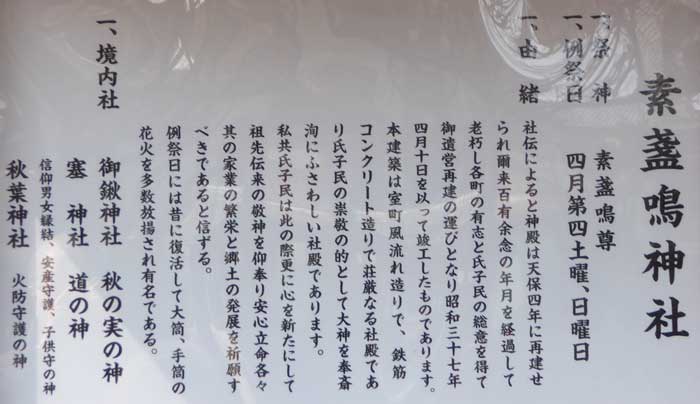 素盞鳴神社
一、祭神　素盞鳴尊
一、例祭日　四月第四土曜、日曜日
一、由緒
社伝によると神殿は天保四年に再建せ
られ爾来百有余念の年月を経過して
老朽し各町の有志と氏子民の総意を得て
御造営再建の運びとなり昭和三十七年
四月十日を以って竣工したものであります。
本建築は室町風流れ造りで、鉄筋
コンクリート造りで荘厳なる社殿であ
り氏子民の崇敬の的として大神を奉斎
洵にふさわしい社殿であります。
私共氏子民は此の際更に心を新たにして
祖先伝来の敬神を仰奉り安心立命各々
其の家業の繁栄と郷土の発展を祈願す
べきであると信ずる。
例祭日には昔に復活して大筒、手筒の
花火を多数放揚され有名である。
一、境内社
御鍬神社　秋の実の神
塞神社　道の神
信仰男女縁結、安産守護、子供守の神
秋葉神社　火防守護の神